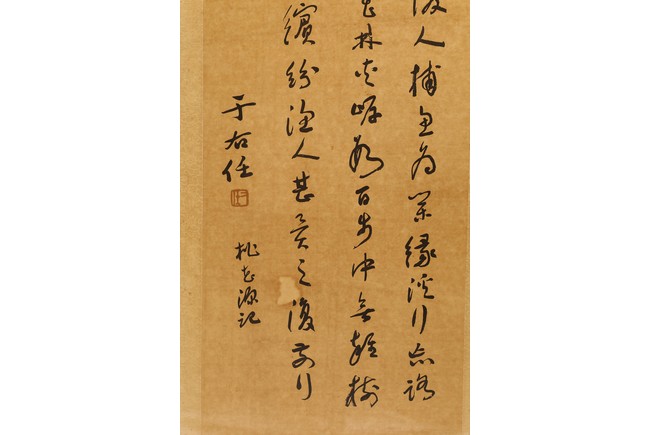 陵人捕魚為業緣溪行忘路
花林夾岸數百步中無雜樹
繽紛漁人甚異之復前行
于右任
桃花源記